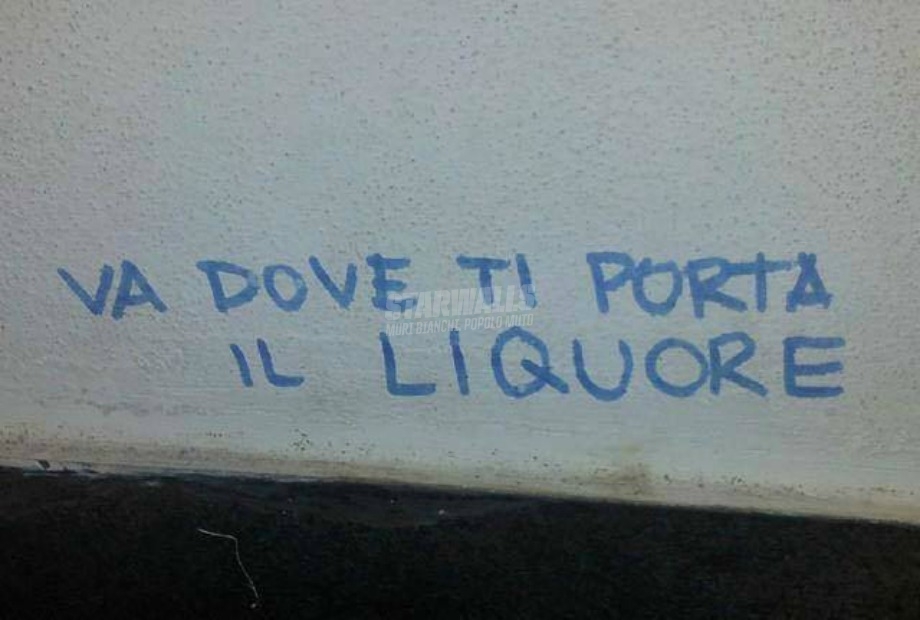 VA DOVE TI PORTA
STARWALLS
MURI BIANCHI, POPOLO MUTO
IL LIQUORE